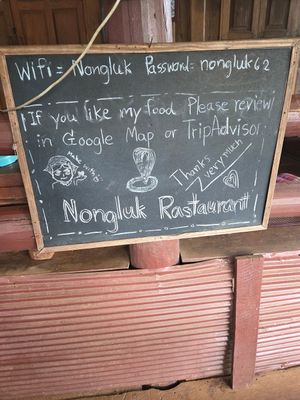 Wifi = Nongluk Password = nongluk62
If you like my food Please review
in Google Map or TripAdvisor
Thanks
very much
Nongluk Rastaurant